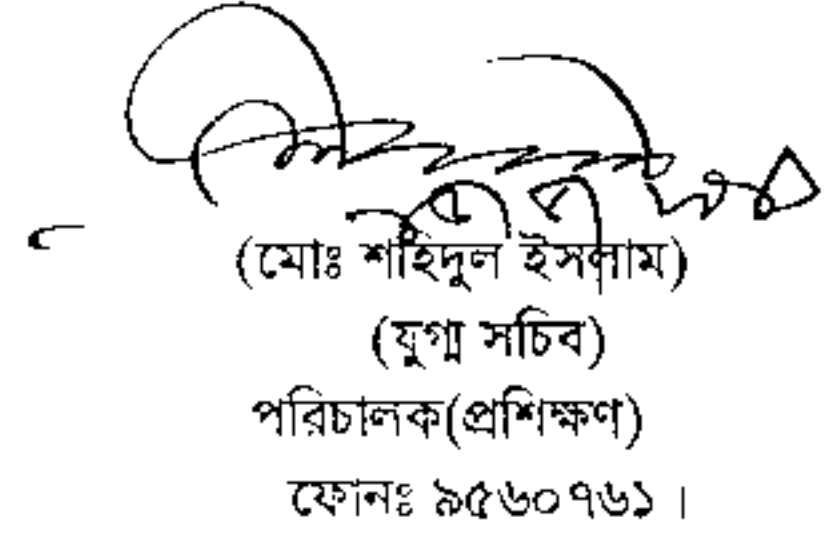 (মোঃ শহিদুল ইসলাম)
(যুগ্ম সচিব)
পরিচালক(প্রশিক্ষণ)
ফোনঃ ৯৫৬০৭৬১।